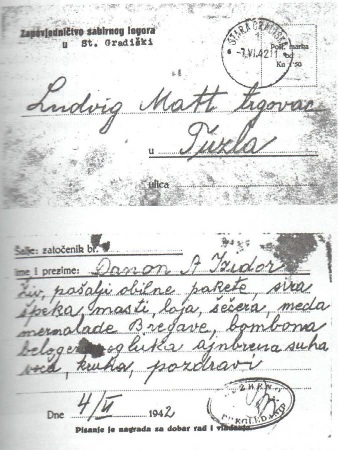 Zapovjedničtvo sabirnog logora
u St. Gradiški
STARA GRADIŠKA
-7.VI.42 11
Pošt. marka
od
Kn 1·50
Ludvig Matt trgovac
u Tuzla
ulica
Šalje: zatočenik br.
ime i prezime: Danon A Izidor
Živ, pošalji obilne pakete, sira
špeka, masti, loja, šećera, meda
mermalade Bregave, bombona
beloga luka ajnbrena suha
voća, kruha, pozdravi
Dne 4/VI 1942
Pisanje je nagrada sa dobar rad i vladanje.
PREGLEDANO